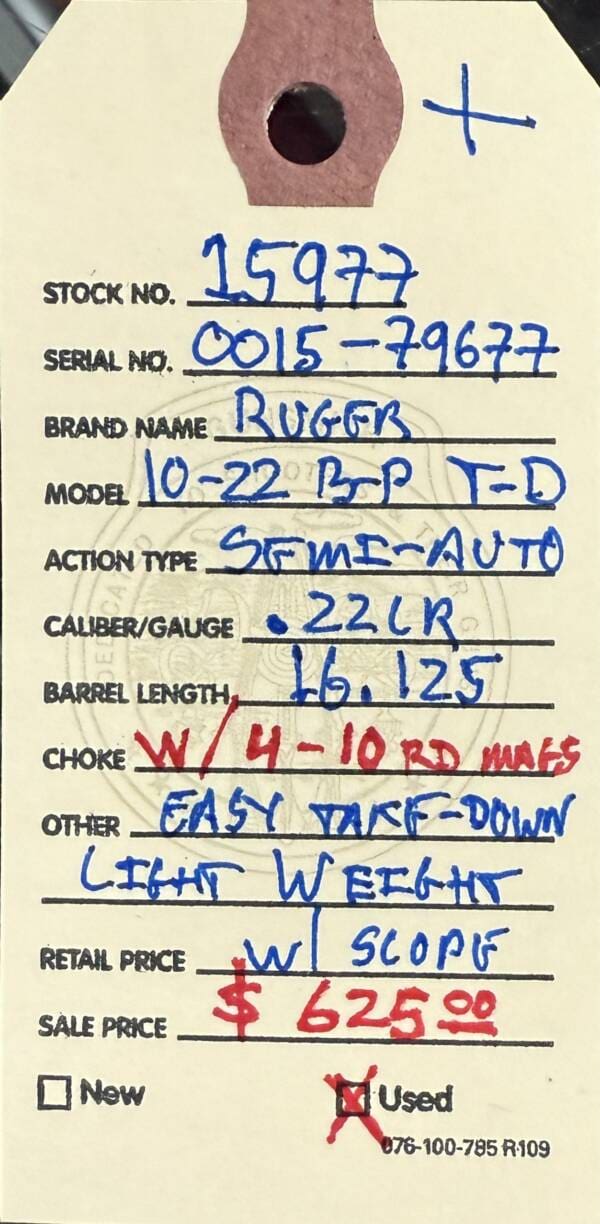 +
STOCK NO. 15977
SERIAL NO. 0015-79677
BRAND NAME RUGER
MODEL 10-22 B-P T-D
ACTION TYPE SEMI-AUTO
CALIBER/GAUGE .22LR
BARREL LENGTH 16.125
CHOKE W/ 4-10 RD MAGS
OTHER EASY TAKE-DOWN
LIGHT WEIGHT
RETAIL PRICE W/ SCOPE
SALE PRICE $ 625.00
New Used
076-100-785 R109